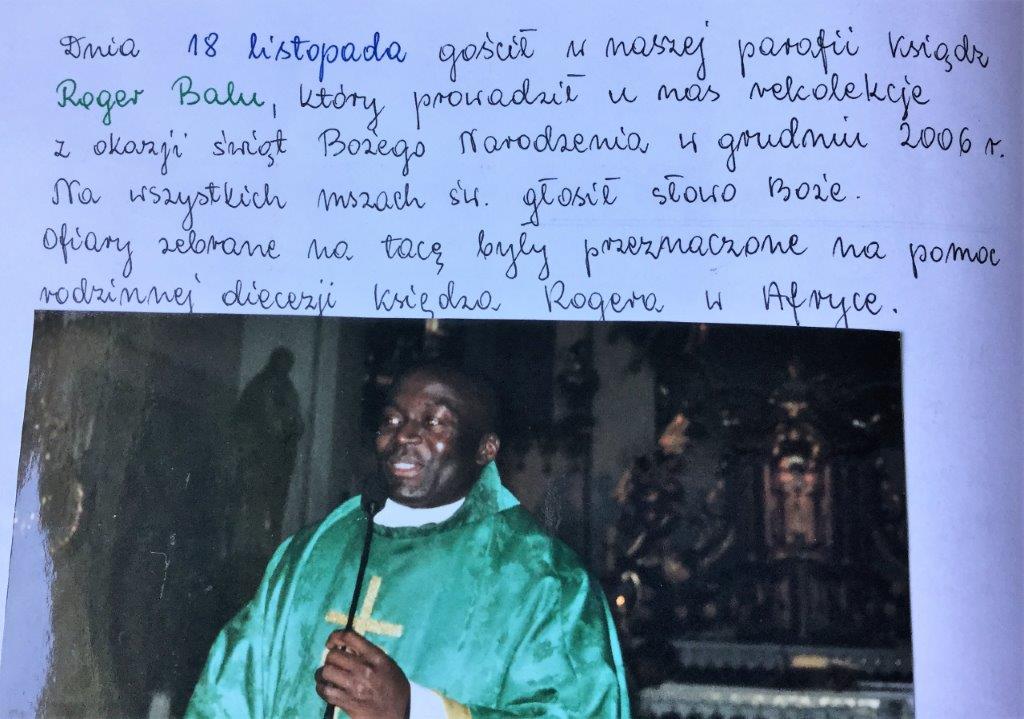 Dnia 18 listopada gościł w naszej parafii Ksiądz
Roger Balu, który prowadził u nas rekolekcje
z okazji świąt Bożego Narodzenia w grudniu 2006 r.
Na wszystkich mszach św. głosił słowo Boże.
Ofiary zebrane na tacę były przeznaczone na pomoc
rodzinnej diecezji księdza Rogera w Afryce.